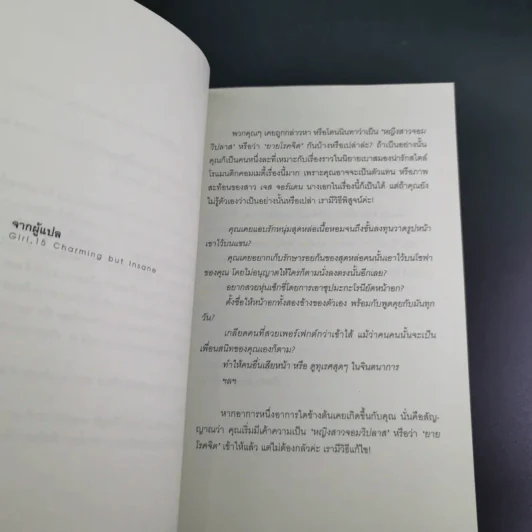 จากผู้แปล
Girl, 15 Charming but Insane
พวกคุณๆ เคยถูกกล่าวหา หรือโดนนินทาว่าเป็น 'หญิงสาวจอม
วิปลาส' หรือว่า 'ยายโรคจิต' กันบ้างหรือเปล่าล่ะ? ถ้าเป็นอย่างนั้น
คุณก็เป็นคนหนึ่งละที่เหมาะกับเรื่องราวในนิยายเบาสมองน่ารักสไตล์
โรแมนติกคอมเมดี้เรื่องนี้มาก เพราะคุณอาจจะเป็นตัวแทน หรือภาพ
สะท้อนของสาว เจส จอร์แดน นางเอกในเรื่องนี้ก็เป็นได้ แต่ถ้าคุณยัง
ไม่รู้ตัวเองว่าเป็นอย่างนั้นหรือเปล่า เรามีวิธีพิสูจน์ค่ะ!
คุณเคยแอบรักหนุ่มสุดหล่อเนื้อหอมจนถึงขั้นลงทุนวาดรูปหน้า
เขาไว้บนแขน?
คุณเคยอยากเก็บรักษารอยก้นของสุดหล่อคนนั้นเอาไว้บนโซฟา
ของคุณ โดยไม่อนุญาตให้ใครก็ตามนั่งลงตรงนั้นอีกเลย?
อยากสวยหุ่นเซ็กซี่โดยการเอาซุปมะกะโรนียัดหน้าอก?
ตั้งชื่อให้หน้าอกทั้งสองข้างของตัวเอง พร้อมกับพูดคุยกับมันทุก
วัน?
เกลียดคนที่สวยเพอร์เฟกต์กว่าเข้าไส้ แม้ว่าคนคนนั้นจะเป็น
เพื่อนสนิทของคุณเองก็ตาม?
ทำให้คนอื่นเสียหน้า หรือ ดูทุเรศสุดๆ ในจินตนาการ
ฯลฯ
หากอาการหนึ่งอาการใดข้างต้นเคยเกิดขึ้นกับคุณ นั่นคือสัญ-
ญาณว่า คุณเริ่มมีเค้าความเป็น 'หญิงสาวจอมวิปลาส' หรือว่า 'ยาย
โรคจิต' เข้าให้แล้ว แต่ไม่ต้องกลัวค่ะ เรามีวิธีแก้ไข!